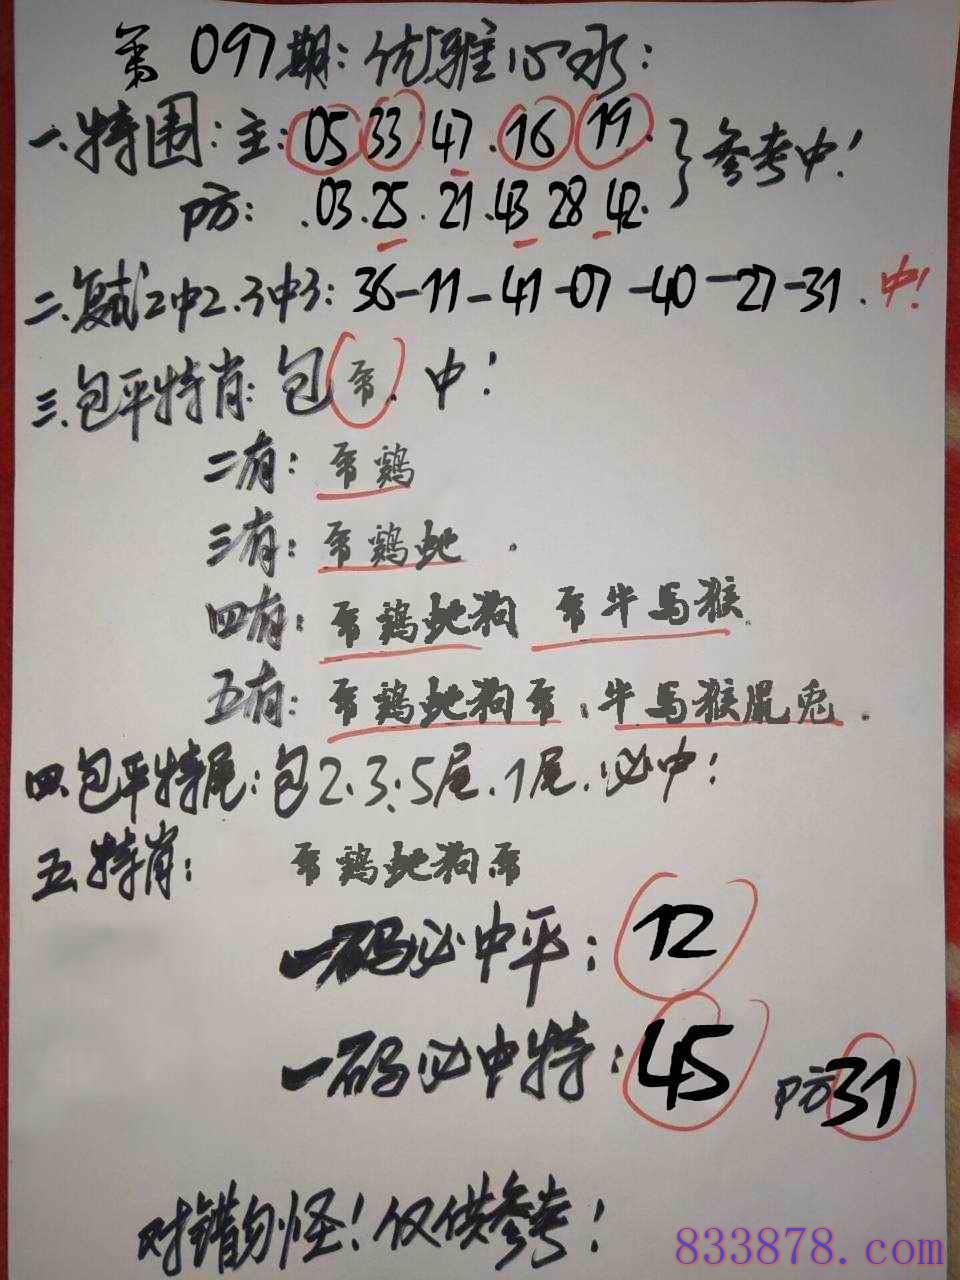 第097期:优雅心水:
一.特围:主:05 33 47.16 19.
防:.03.25.21.43 28 42. }参考中!
二.复试2中2.3中3:36-11-41-07-40-27-31.中!
三.包平特肖:包.中!
二有:鸡
三有:鸡蛇.
四有:鸡蛇狗 牛马猴
五有:鸡蛇狗.牛马猴鼠兔.
四.包平特尾:包2.3.5尾.1尾.必中!
五.特肖:鸡蛇狗
一码必中平:12
一码必中特:45 防31
对错勿怪!仅供参考!
833878.com